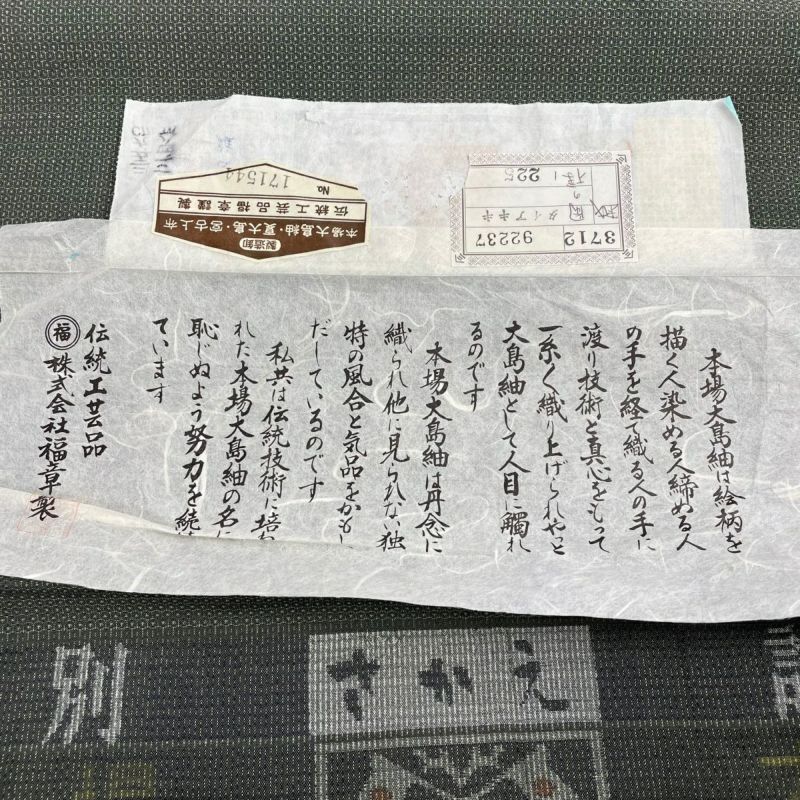 No. 171544
伝統工芸品福章謹製
本場大島紬・夏大島・宮古上布
製造卸
225
タイアキネ
3712
92237
本場大島紬は絵柄を
描く人染める人締める人
の手を経て織る人の手に
渡り技術と真心をもって
一糸く織り上げられやっと
大島紬として人目に触れ
るのです
本場大島紬は丹念に
織られ他に見られない独
特の風合と気品をかもし
だしているのです
私共は伝統技術に培わ
れた本場大島紬の名に
恥じぬよう努力を続け
ています
伝統工芸品
福 株式会社福章製
別
さかえ